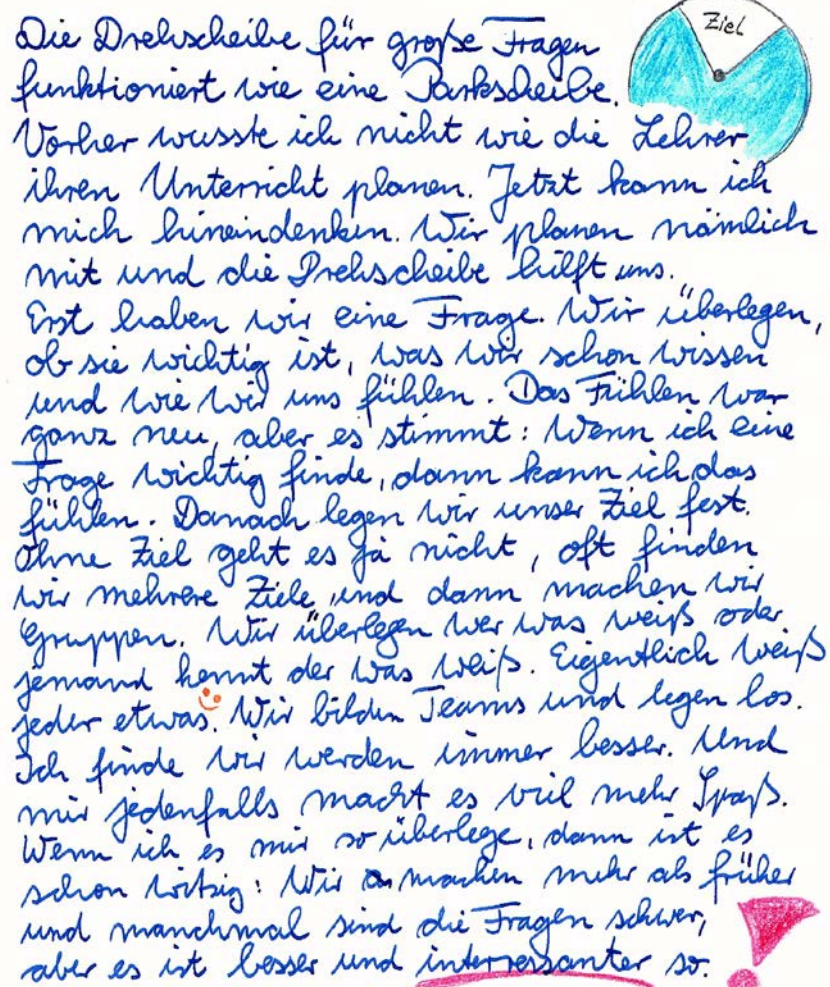 Ziel
Die Drehscheibe für große Fragen
funktioniert wie eine Parkscheibe.
Vorher wusste ich nicht wie die Lehrer
ihren Unterricht planen. Jetzt kann ich
mich hineindenken. Wir planen nämlich
mit und die Drehscheibe hilft uns.
Erst haben wir eine Frage. Wir überlegen,
ob sie wichtig ist, was wir schon wissen
und wie wir uns fühlen. Das Fühlen war
ganz neu, aber es stimmt: Wenn ich eine
Frage wichtig finde, dann kann ich das
fühlen. Danach legen wir unser Ziel fest.
Ohne Ziel geht es ja nicht, oft finden
wir mehrere Ziele und dann machen wir
Gruppen. Wir überlegen wer was weiß oder
jemand kennt der was weiß. Eigentlich weiß
jeder etwas. Wir bilden Teams und legen los.
Ich finde wir werden immer besser. Und
mir jedenfalls macht es viel mehr Spaß.
Wenn ich es mir so überlege, dann ist es
schon witzig: Wir machen mehr als früher
und manchmal sind die Fragen schwer,
aber es ist besser und interressanter so.
!